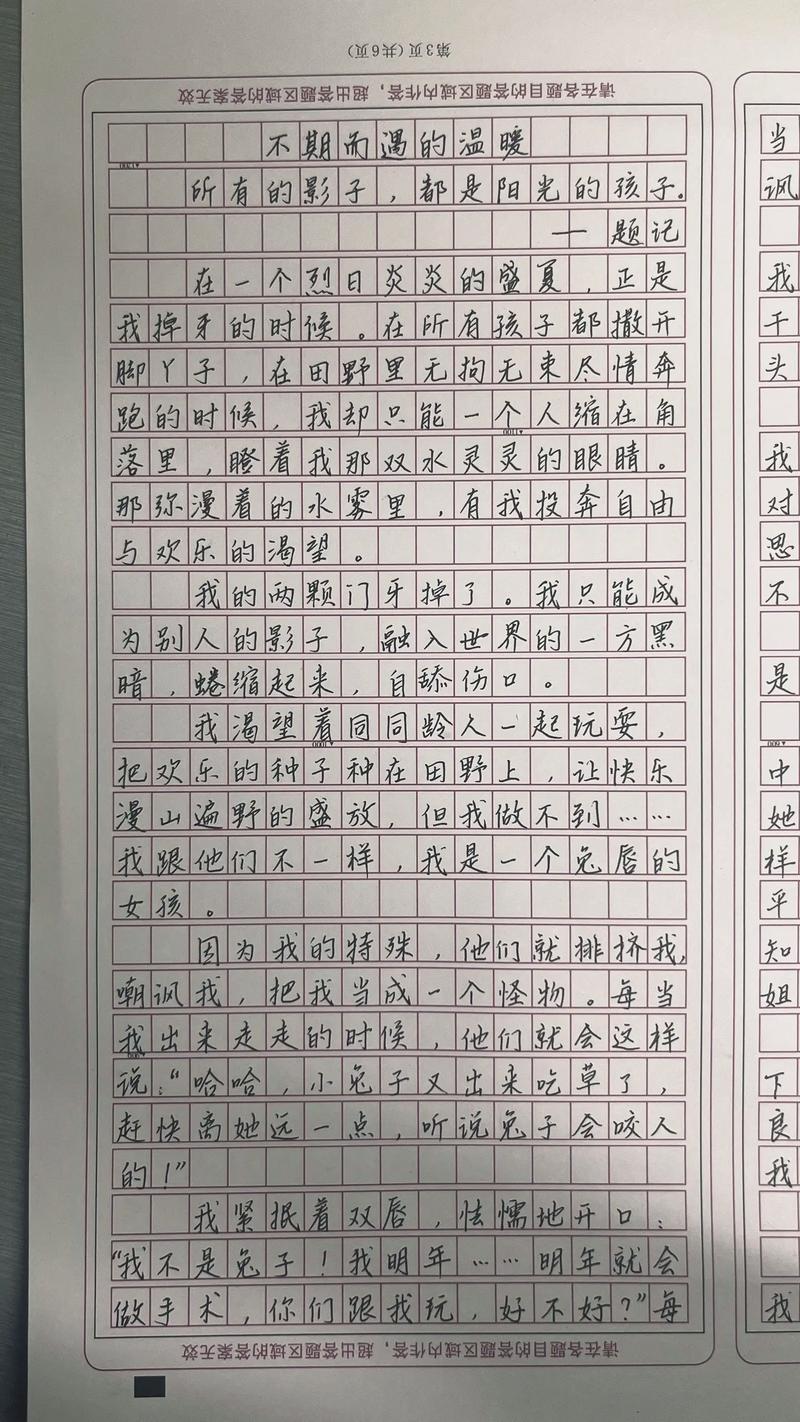 第3页(共6页)
请在各题目的答题区域内作答，超出答题区域的答案无效
不期而遇的温暖
所有的影子，都是阳光的孩子。
— 题记
在一个烈日炎炎的盛夏，正是
我掉牙的时候。在所有孩子都撒开
脚丫子，在田野里无拘无束尽情奔
跑的时候，我却只能一个人缩在角
落里，瞪着我那双水灵灵的眼睛。
那弥漫着的水雾里，有我投奔自由
与欢乐的渴望。
我的两颗门牙掉了。我只能成
为别人的影子，融入世界的一方黑
暗，蜷缩起来，自舔伤口。
我渴望着同同龄人一起玩耍，
把欢乐的种子种在田野上，让快乐
漫山遍野的盛放，但我做不到……
我跟他们不一样，我是一个兔唇的
女孩。
因为我的特殊，他们就排挤我，
嘲讽我，把我当成一个怪物。每当
我出来走走的时候，他们就会这样
说：“哈哈，小兔子又出来吃草了，
赶快离她远一点，听说兔子会咬人
的！”
我紧抿着双唇，怯懦地开口：
“我不是兔子！我明年……明年就会
做手术，你们跟我玩，好不好？”每
请在各题目的答题区域内作答，超出答题区域的答案无效
当
讽
我
干
头
我
对
思
不
是
中
她
样
平
知
姐
下
良
我
我